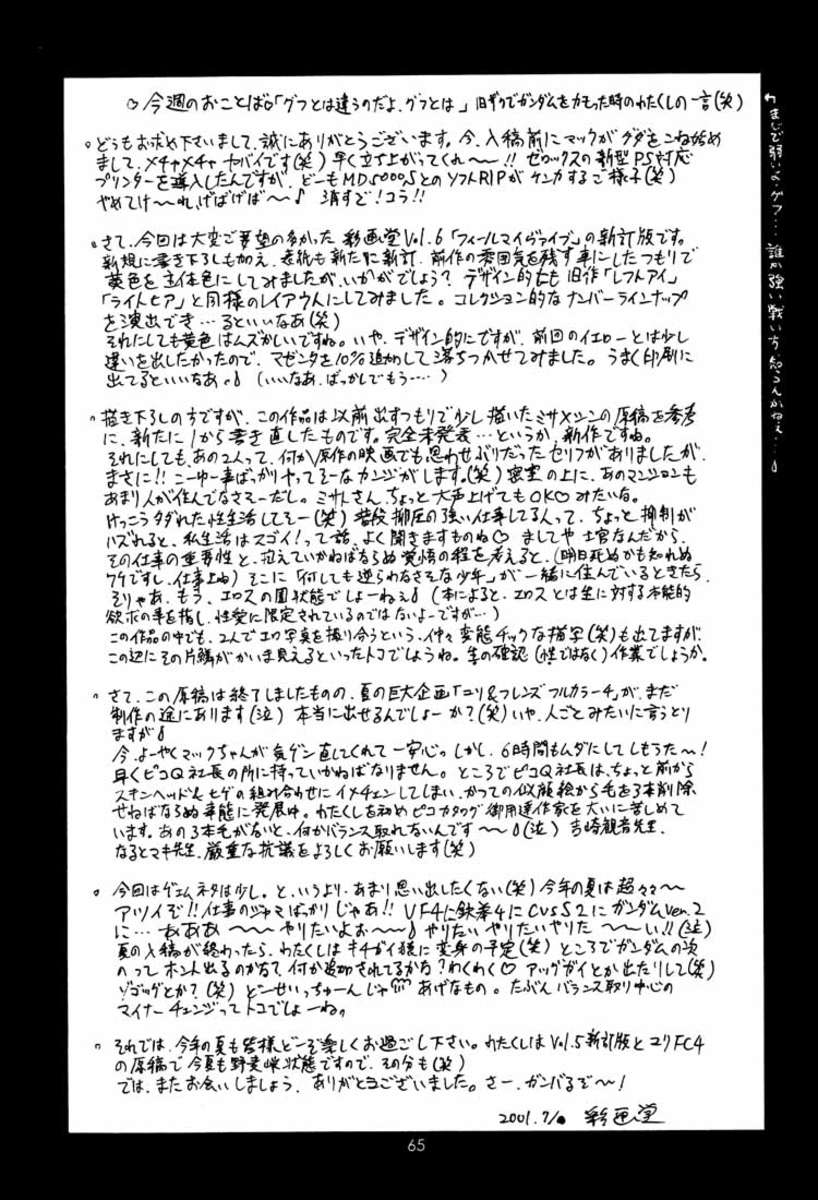 ○ 今週のおことば「グフとは違うのだよ、グフとは」旧ザクでガンダムをカモった時のわたくしの一言(笑)
。どうもお求め下さいまして、誠にありがとうございます。今、入稿前にマックがグダをこね始め
まして、メチャメチャヤバイです(笑)早く立ち上がってくれ〜〜!! ゼロックスの新型PS対応
プリンターを導入したんですが、どーもMD5000SとのソフトRIPがケンカするご様子(笑)
やめてけ〜れ、げばげば〜♪ 消すで!コラ!!
。さて、今回は大変ご要望の多かった 彩画堂Vol.6「フィールマイヴァイブ」の新訂版です。
新規に書き下ろしも加え、表紙も新たに新訂、前作の雰囲気を残す事にしたつもりで
黄色を主体色にしてみましたが、いかがでしょう?デザイン的にも旧作「レフトアイ」
「ライトヒア」と同様のレイアウトにしてみました。コレクション的なナンバーラインナップ
を演出でき…るといいなあ(笑)
それにしても黄色はムズかしいですね。いや、デザイン的にですが、前回のイエローとは少し
違いを出したかったので、マゼンタを10%追加して落ちつかせてみました。うまく印刷に
出てるといいなあ。(いいなあ、ばっかしでもう……)
。描き下ろしの方ですが、この作品は以前出すつもりで少し描いたミサ×シンの原稿を参考
に、新たに1から書き直したものです。完全未発表…というか、新作ですね。
それにしても、あの2人って、何か原作の映画でも思わせぶりだったセリフがありましたが、
まさに!!こーゆー事ばっかりヤってそーなカンジがします。(笑)密室の上に、あのマンションも
あまり人が住んでなさそーだし。ミサトさん、ちょっと大声上げてもOK♡みたいな。
けっこうタダれた性生活してそー(笑)普段抑圧の強い仕事してる人って、ちょっと抑制が
ハズれると、私生活はスゴイ!って話、よく聞きますものね♡ましてや士官なんだから、
その仕事の重要性と、抱えていかねばならぬ覚悟の程を考えると、(明日死ぬかも知れぬ
ワケですし、仕事上ね)そこに「何しても逆らわなさそな少年」が一緒に住んでいるときたら、
そりゃあ、もう、エロスの園状態でしょーねぇ(本によると、エロスとは生に対する本能的
欲求の事を指し、性愛に限定されているのではないよーですが…)
この作品の中でも、2人でエロ写真を撮り合うという、仲々変態チックな描写(笑)も出てますが、
この辺にその片鱗がかいま見えるといったトコでしょうね。生の確認(性ではなく)作業でしょうか。
。さて、この原稿は終了しましたものの、夏の巨大企画「ユリ&フレンズフルカラー4」が、まだ
制作の途にあります(泣)本当に出せるんでしょーか?(笑)いや、人ごとみたいに言うとり
ますが
今、よーやくマックちゃんが気ゲン直してくれて一安心。しかし、6時間もムダにしてしもうた〜!
早くピコQ社長の所に持っていかねばなりません。ところでピコQ社長は、ちょっと前から
スキンヘッド&ヒゲの組み合わせにイメチェンしてしまい、かつての似顔絵から毛を3本削除
せねばならぬ事態に発展中。わたくしを初めピコカタログ御用達作家を大いに苦しめて
います。あの3本毛がないと、何かバランス取れないんです〜〜(泣)吉崎観音先生、
なるとマキ先生、厳重な抗議をよろしくお願いします(笑)
。今回はゲェムネタは少し。と、いうより、あまり思い出したくない(笑)今年の夏は超々々〜〜
アツイぞ!!仕事のジャマばっかりじゃあ!! VF4に鉄拳4にCVSS2にガンダムVer.2
に…あああ〜〜〜やりたいよお〜〜やりたいやりたいやりた〜〜〜い!!(泣)
夏の入稿が終わったら、わたくしはキチガイ猿に変身の予定(笑)ところでガンダムの次
のってホント出るのかな?何か追加されてるかな?わくわく♡アッグガイとか出たりして(笑)
ゾゴッグとか?(笑)どーせいっちゅーんじゃあげなもの。たぶんバランス取り中心の
マイナーチェンジってトコでしょーね。
。それでは、今年の夏も皆様どーぞ楽しくお過ごし下さい。わたくしはVol.5新訂版とユリFC4
の原稿で今夏も野麦峠状態ですので、その分も(笑)
では、またお会いしましょう、ありがとうございました。さー、ガンバるぞ〜!
2001.7/ 彩画堂
まじで弱いよ、グフ…誰か強い戦い方、知らんかねぇ…
65